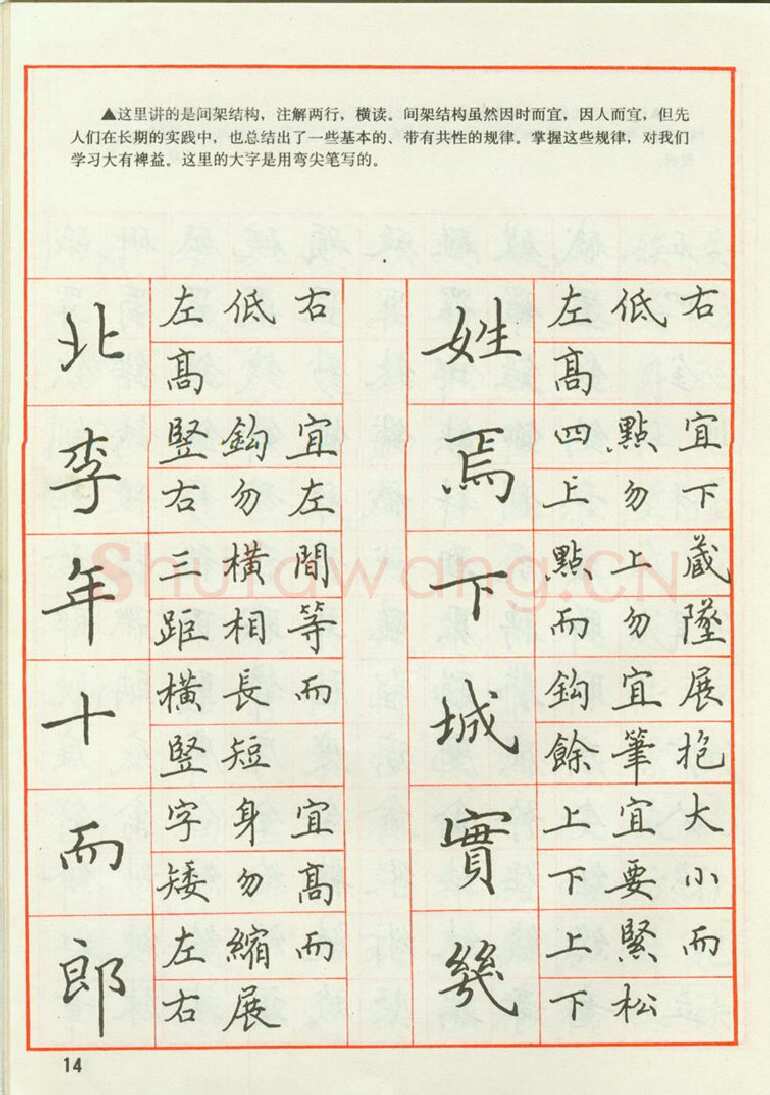 ▲这里讲的是间架结构，注解两行，横读。间架结构虽然因时而宜，因人而宜，但先
人们在长期的实践中，也总结出了一些基本的、带有共性的规律。掌握这些规律，对我们
学习大有裨益。这里的大字是用弯尖笔写的。
北
左低右
高
李
竖鉤宜
右勿左
年
三横間
距相等
十
横長而
竖短
而
字身宜
矮勿高
郎
左縮而
右展
姓
左低右
高
焉
四點宜
上勿下
下
點上蔵
而勿墜
城
鈎宜展
餘筆抱
實
上宜大
下要小
幾
上緊而
下松
shufawang.CN
14